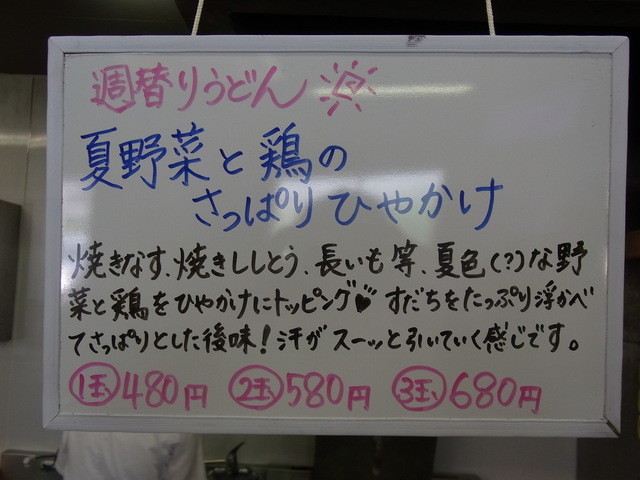 週替りうどん
夏野菜と鶏の
さっぱりひやかけ
焼きなす、焼きししとう、長いも等、夏色(?)な野
菜と鶏をひやかけにトッピング♥ すだちをたっぷり浮かべ
てさっぱりとした後味!汗がスーッと引いていく感じです。
1玉 480円 2玉 580円 3玉 680円